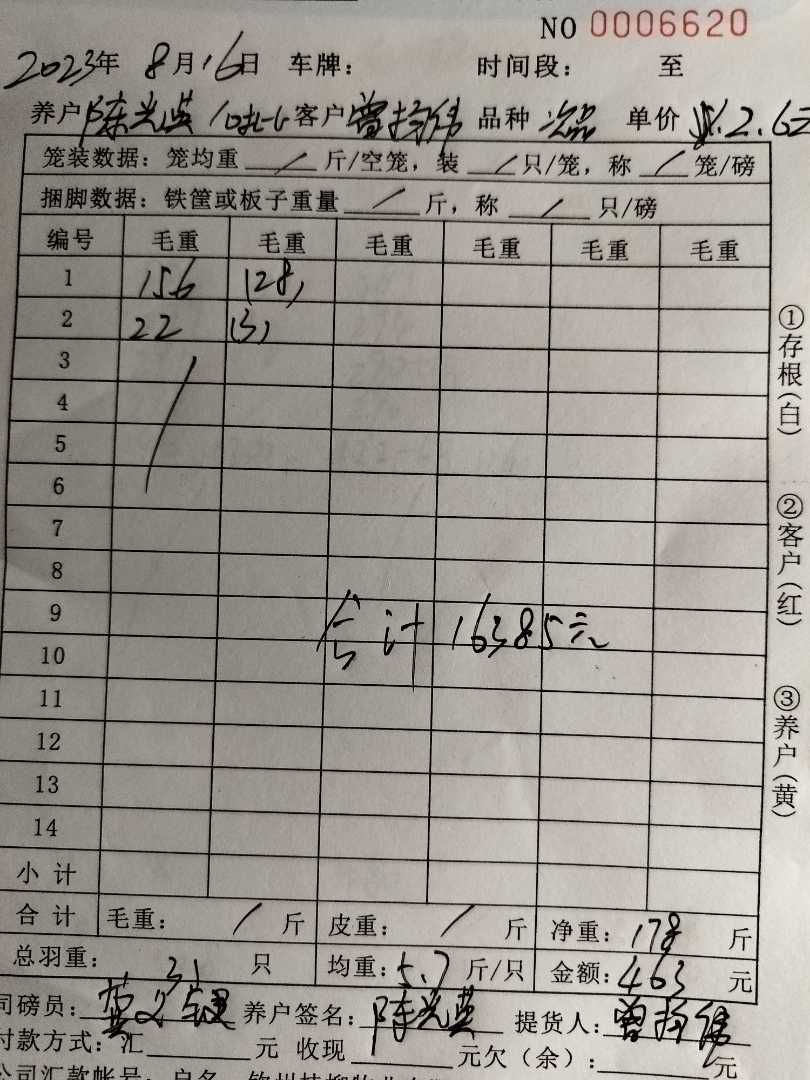 NO 0006620
2023年 8月16日 车牌: 时间段: 至
养户 陈光英 10批-6 客户 曾扬伟 品种 次品 单价 2.6元
笼装数据: 笼均重 / 斤/空笼, 装 / 只/笼, 称 / 笼/磅
捆脚数据: 铁筐或板子重量 / 斤, 称 / 只/磅
编号 毛重 毛重 毛重 毛重 毛重 毛重
1 156 (28)
2 22 (3)
3
4
5
6
7
8
9 合计 16385元
10
11
12
13
14
小计
合计 毛重: / 斤 皮重: / 斤 净重: 178 斤
总羽重: 31 只 均重: 5.7 斤/只 金额: 463 元
司磅员: 养户签名: 陈光英 提货人: 曾扬伟
付款方式: 汇 元 收现 元欠(余): 元
公司汇款帐号: 户名
①存根(白)
②客户(红)
③养户(黄)